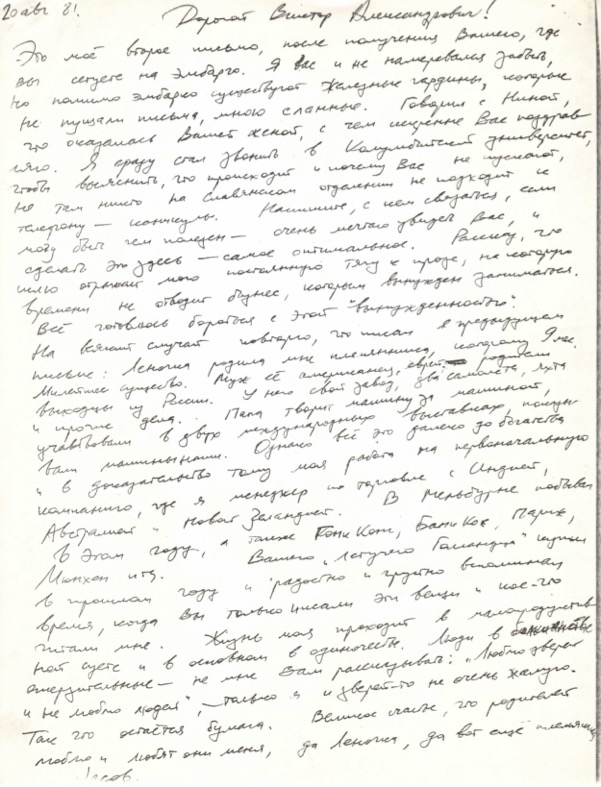 20 авг 81. Дорогой Виктор Александрович!
Это моё второе письмо, после получения Вашего, где
вы сетуете на эмбарго. Я Вас и не намеревался забыть,
но помимо эмбарго существуют железные гардины, которые
не пущали письма, мною сланные. Говорил с Ниной,
что оказалась Вашей женой, с чем искренне Вас поздрав
ляю. Я сразу стал звонить в Колумбийский университет,
чтобы выяснить, что происходит и почему Вас не пускают,
но там никто на славянском отделении не подходит к
телефону — каникулы. Напишите, с кем связаться, если
могу быть чем полезен — очень мечтаю увидеть Вас, и
сделать это здесь — самое оптимальное. Рассказ, что
шлю отражает мою постоянную тягу к прозе, на которую
времени не отводит бизнес, которым вынужден заниматься.
Всё готовлюсь бороться с этой "вынужденностью".
На всякий случай повторю, что писал в предыдущем
письме: Леночка родила мне племянника, которому 9 мес.
Милейшее существо. Муж её американец, еврей, родители
выходцы из России. У него свой завод, два самолёта, яхта
и прочие дела. Папа творит машину за машиной,
участвовали в двух международных выставках,
вали машинынаши. Однако всё это далеко до богатства
и в доказательство тому моя работа на первоначальную
компанию, где я менеджер по торговле с Индией,
Австралией и Новой Зеландией. В Мельбурне побывал
в этом году, а также Гонг Конг, Банкок, Париж,
Мюнхен итд. Вашего "Летучего Голландца" купил
в прошлом году и радостно и грустно вспоминал
время, когда Вы только писали эти вещи и кое-что
читали мне. Жизнь моя проходит в малопродуктив
ной суете и в основном в одиночестве. Люди в большинстве
омерзительные — не мне Вам рассказывать: "Люблю зверей
и не люблю людей", — только я и зверей-то не очень жалую.
Так что остаётся бумага. Великое счастье, что родителей
люблю и любят они меня, да Леночка, да вот ещё племянник